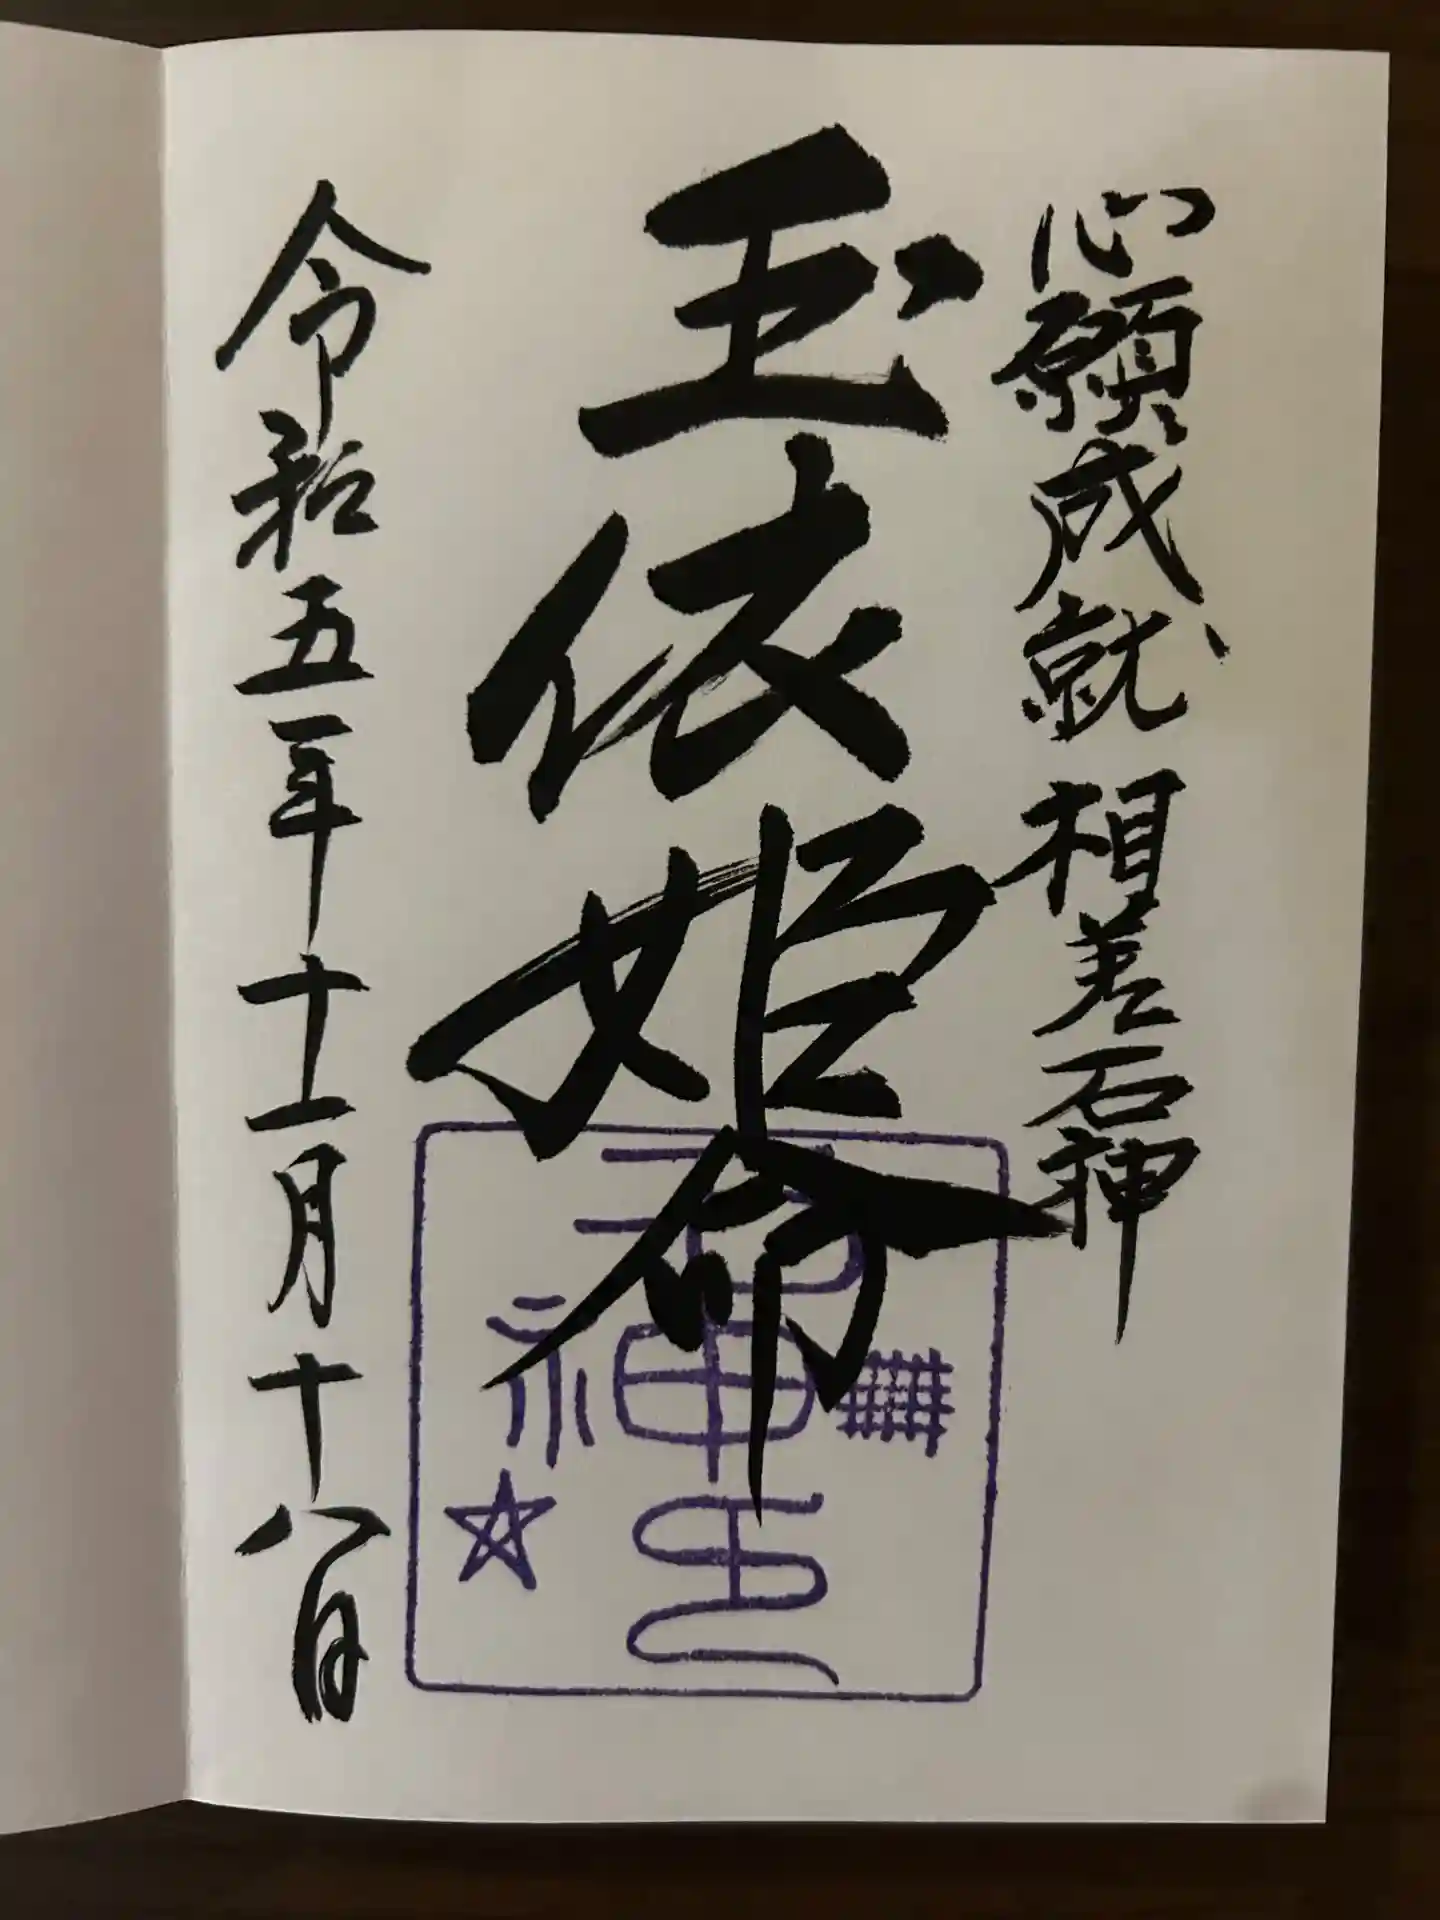 心願成就 相差石神
玉依姫命
令和五年十一月十八日
石神